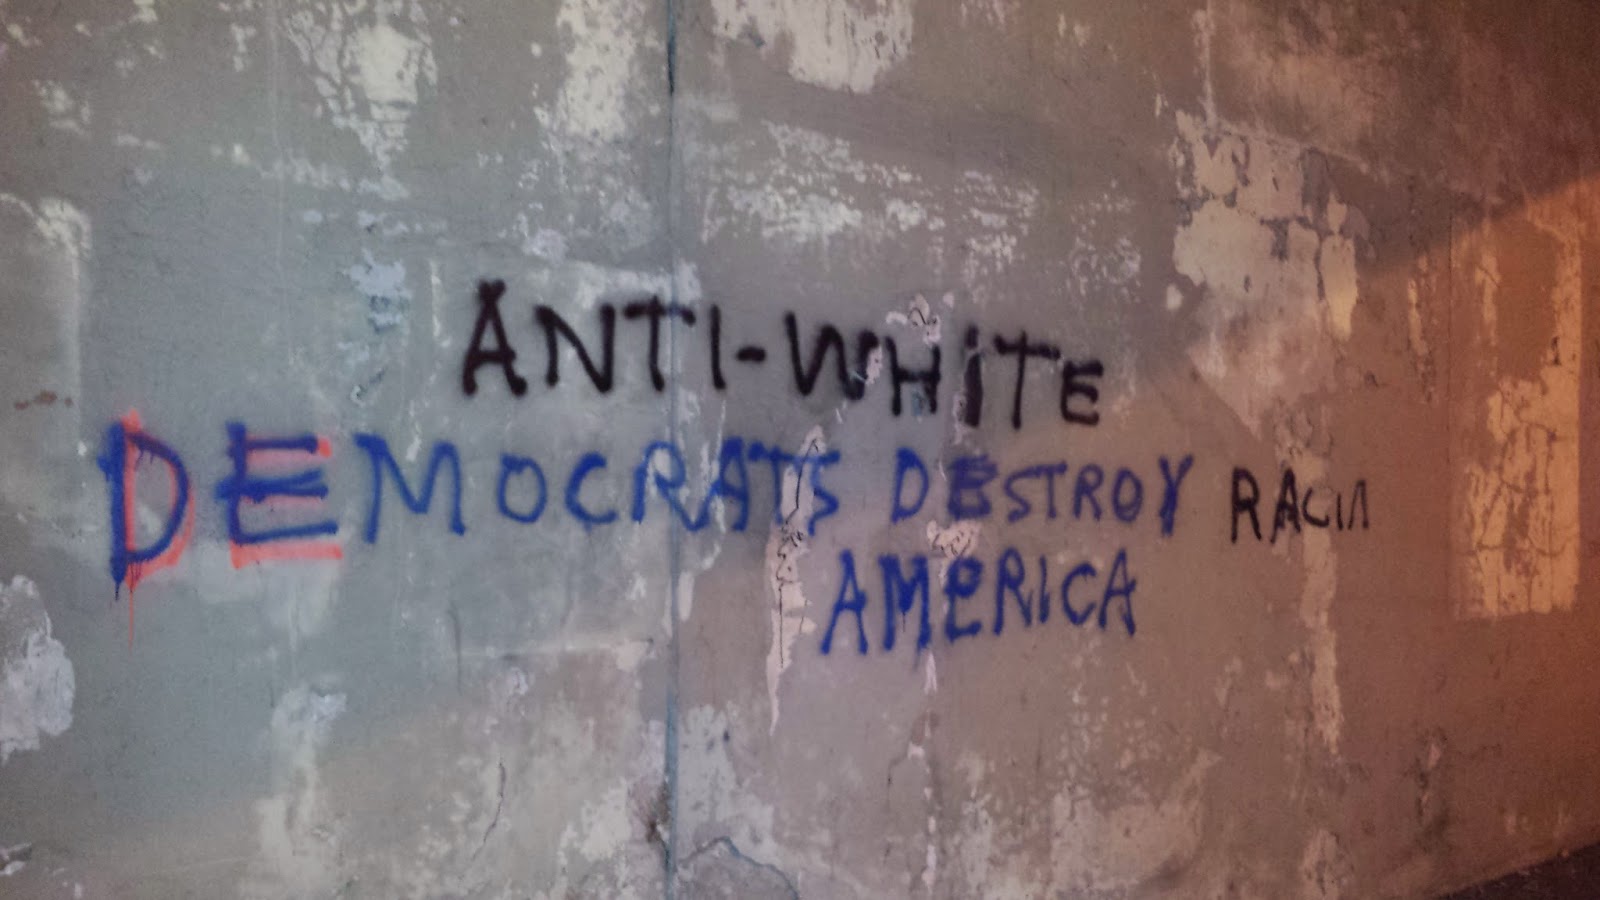 ANTI-WHITE
DEMOCRATS DESTROY
AMERICA